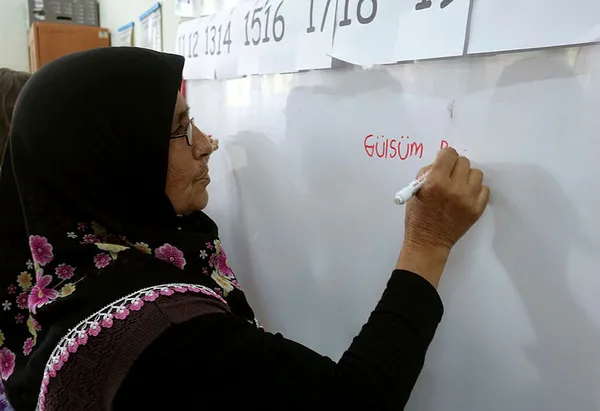 12 1314 1516 17/18
Gülsüm